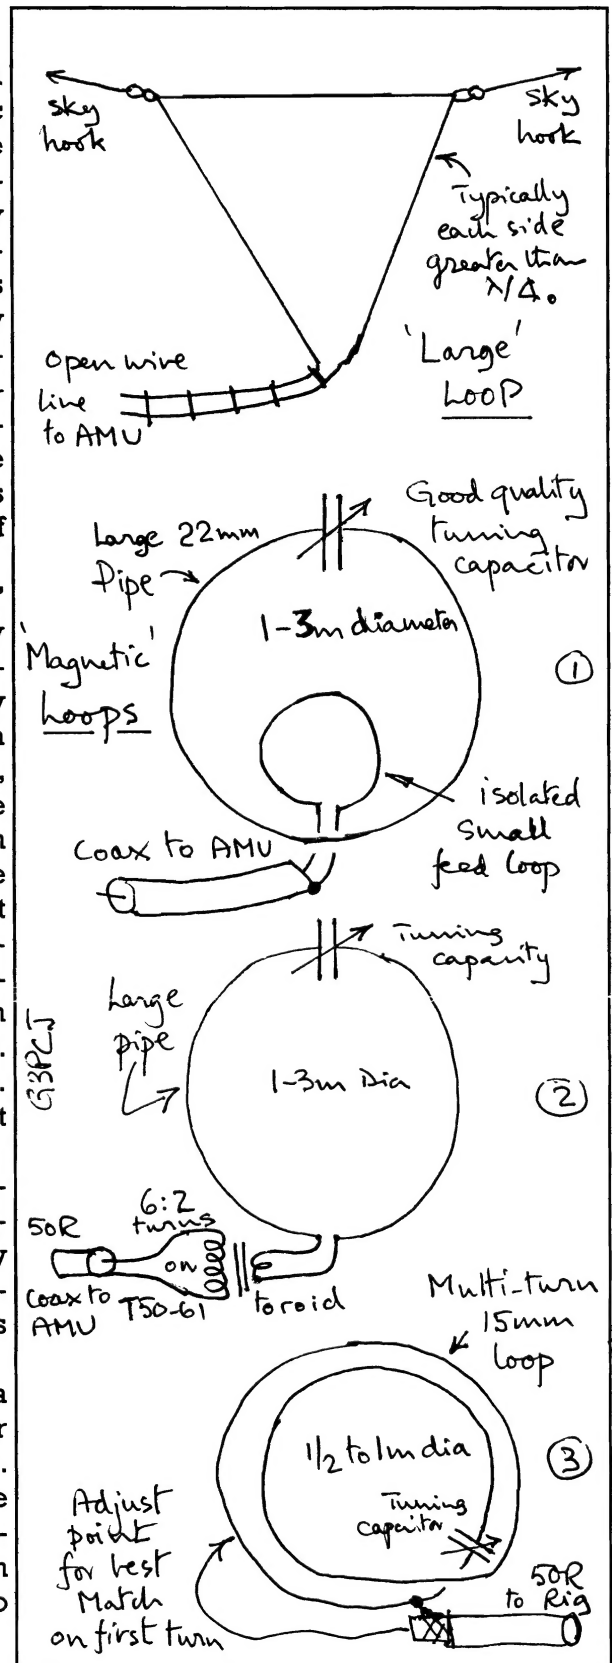 sky
hook
sky
hook
Typically
each side
greater than
λ/4.
'Large'
Loop
Open wire
line
to AMU
Good quality
tuning
capacitor
Large 22mm
Pipe
1-3m diameter
'Magnetic'
Loops
1
isolated
small
feed loop
Coax to AMU
Tuning
capacity
Large
pipe
1-3m Dia
G3PCJ
2
6:2
turns
on
T50-61
toroid
50R
Coax to
AMU
Multi-turn
15mm
loop
1/2 to 1m dia
3
Tuning
capacitor
Adjust
point
for best
Match
on first turn
50R
to Rig